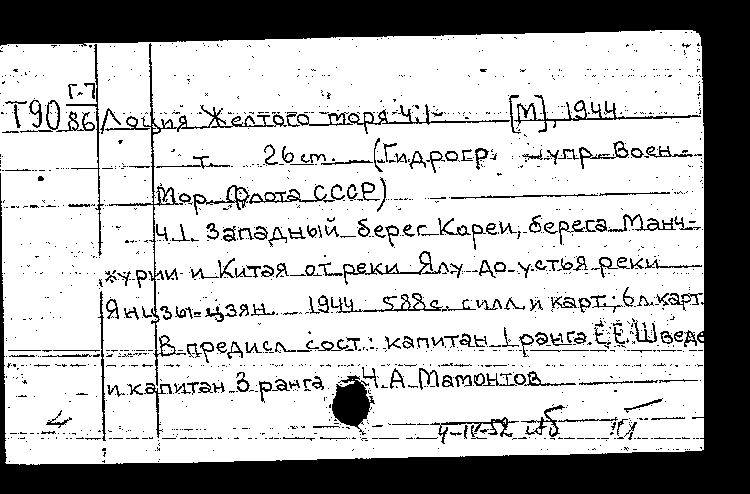 Г-7
Т90 86 Лоция Желтого моря Ч.1- [М], 1944.
т. 26 см. (Гидрогр. упр. Воен.-
Мор. Флота СССР)
Ч.1. Западный берег Кореи, берега Манч-
журии и Китая от реки Ялу до устья реки
Янцзы-цзян. 1944. 588с. с илл. и карт.; 6 л. карт.
В предисл. сост.: капитан 1 ранга Е.Е. Шведе
и капитан 3 ранга Н.А. Мамонтов
4-IV-52